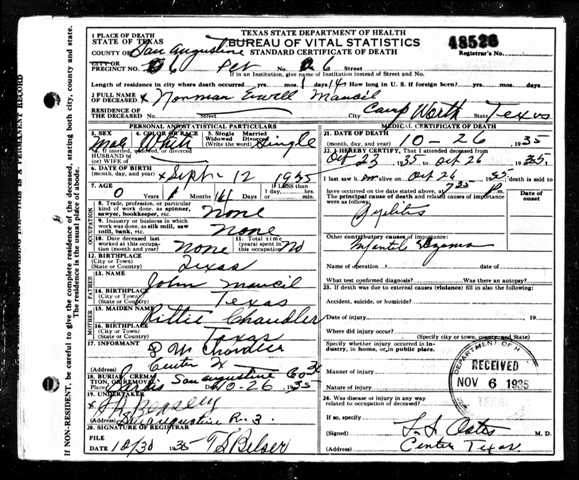 TEXAS STATE DEPARTMENT OF HEALTH
BUREAU OF VITAL STATISTICS
STANDARD CERTIFICATE OF DEATH
48526
Registrar's No.
1 PLACE OF DEATH
STATE OF TEXAS
COUNTY OF San Augustine
CITY OR
PRECINCT NO. 6 Pct 6 Street
If in an Institution, give name of Institution instead of Street and Number.
Length of residence in city where death occurred yrs. 1 mos. 14 How long in U. S. if foreign born? yrs. mos. days.
2 FULL NAME
OF DECEASED x Norman Ewell Mancil
RESIDENCE OF
THE DECEASED No. Street City Camp Worth State Texas
PERSONAL AND STATISTICAL PARTICULARS
3. SEX male 4. COLOR OR RACE White 5. Single Married
Widowed Divorced
(Write the word) Single
If married, widowed or divorced
HUSBAND of
or WIFE of
6. DATE OF BIRTH
(month, day, year) x Sept- 12 1935
7. AGE 0 1 14 IF LESS than
1 day, hrs.
OCCUPATION
8. Trade, profession, or particular
kind of work done, as spinner,
sawyer, bookkeeper, etc. None
9. Industry or business in which
work was done, as silk mill, saw
mill, bank, etc. None
10. Date deceased last
worked at this occupa-
tion (month and year) None
11. Total time
(years) spent in
this occupation No
12. BIRTHPLACE
(City or Town)
(State or Country) Texas
FATHER
13. NAME John Mancil
14. BIRTHPLACE
(City or Town)
(State or Country) Texas
MOTHER
15. MAIDEN
NAME Rittie Chandler
16. BIRTHPLACE
(City or Town)
(State or Country) Texas
17. INFORMANT M Chandler
(Address) Center
18. BURIAL, CREMA-
TION, OR REMOVAL San Augustine Co
10-26 1935
19. UNDERTAKER
(Address) San Augustine R. 3.
20. SIGNATURE OF REGISTRAR
FILE
DATE 10/30 35 Belser
MEDICAL CERTIFICATE OF DEATH
21. DATE OF DEATH
(month, day, year) 10 26 1935
22. I HEREBY CERTIFY, That I attended deceased from
Oct 23 1935 to Oct 26 1935.
I last saw him alive on Oct 26 1935, death is said to
have occurred on the date stated above, at 7 25 P.
The principal cause of death and related causes of importance
were as follows:
Date of
onset
Pyelitis
Other contributory causes of importance:
Infantile Eczema
Name of operation date of
What test confirmed diagnosis? Was there an autopsy?
23. If death was due to external causes (violence) fill in also the following:
Accident, suicide, or homicide?
Date of injury 19
Where did injury occur?
(City or town, county and State)
Specify whether injury occurred in
Industry, in home, or in public place.
Manner of injury
Nature of injury
24. Was disease or injury in any way
related to occupation of deceased?
If so, specify
(Signed) Oates M. D.
(Address) Center Texas.
DEPARTMENT OF H
RECEIVED
NOV 6 1935
IF NON-RESIDENT, be careful to give the complete residence of the deceased, stating both city, county and state.
The residence is the usual place of abode.